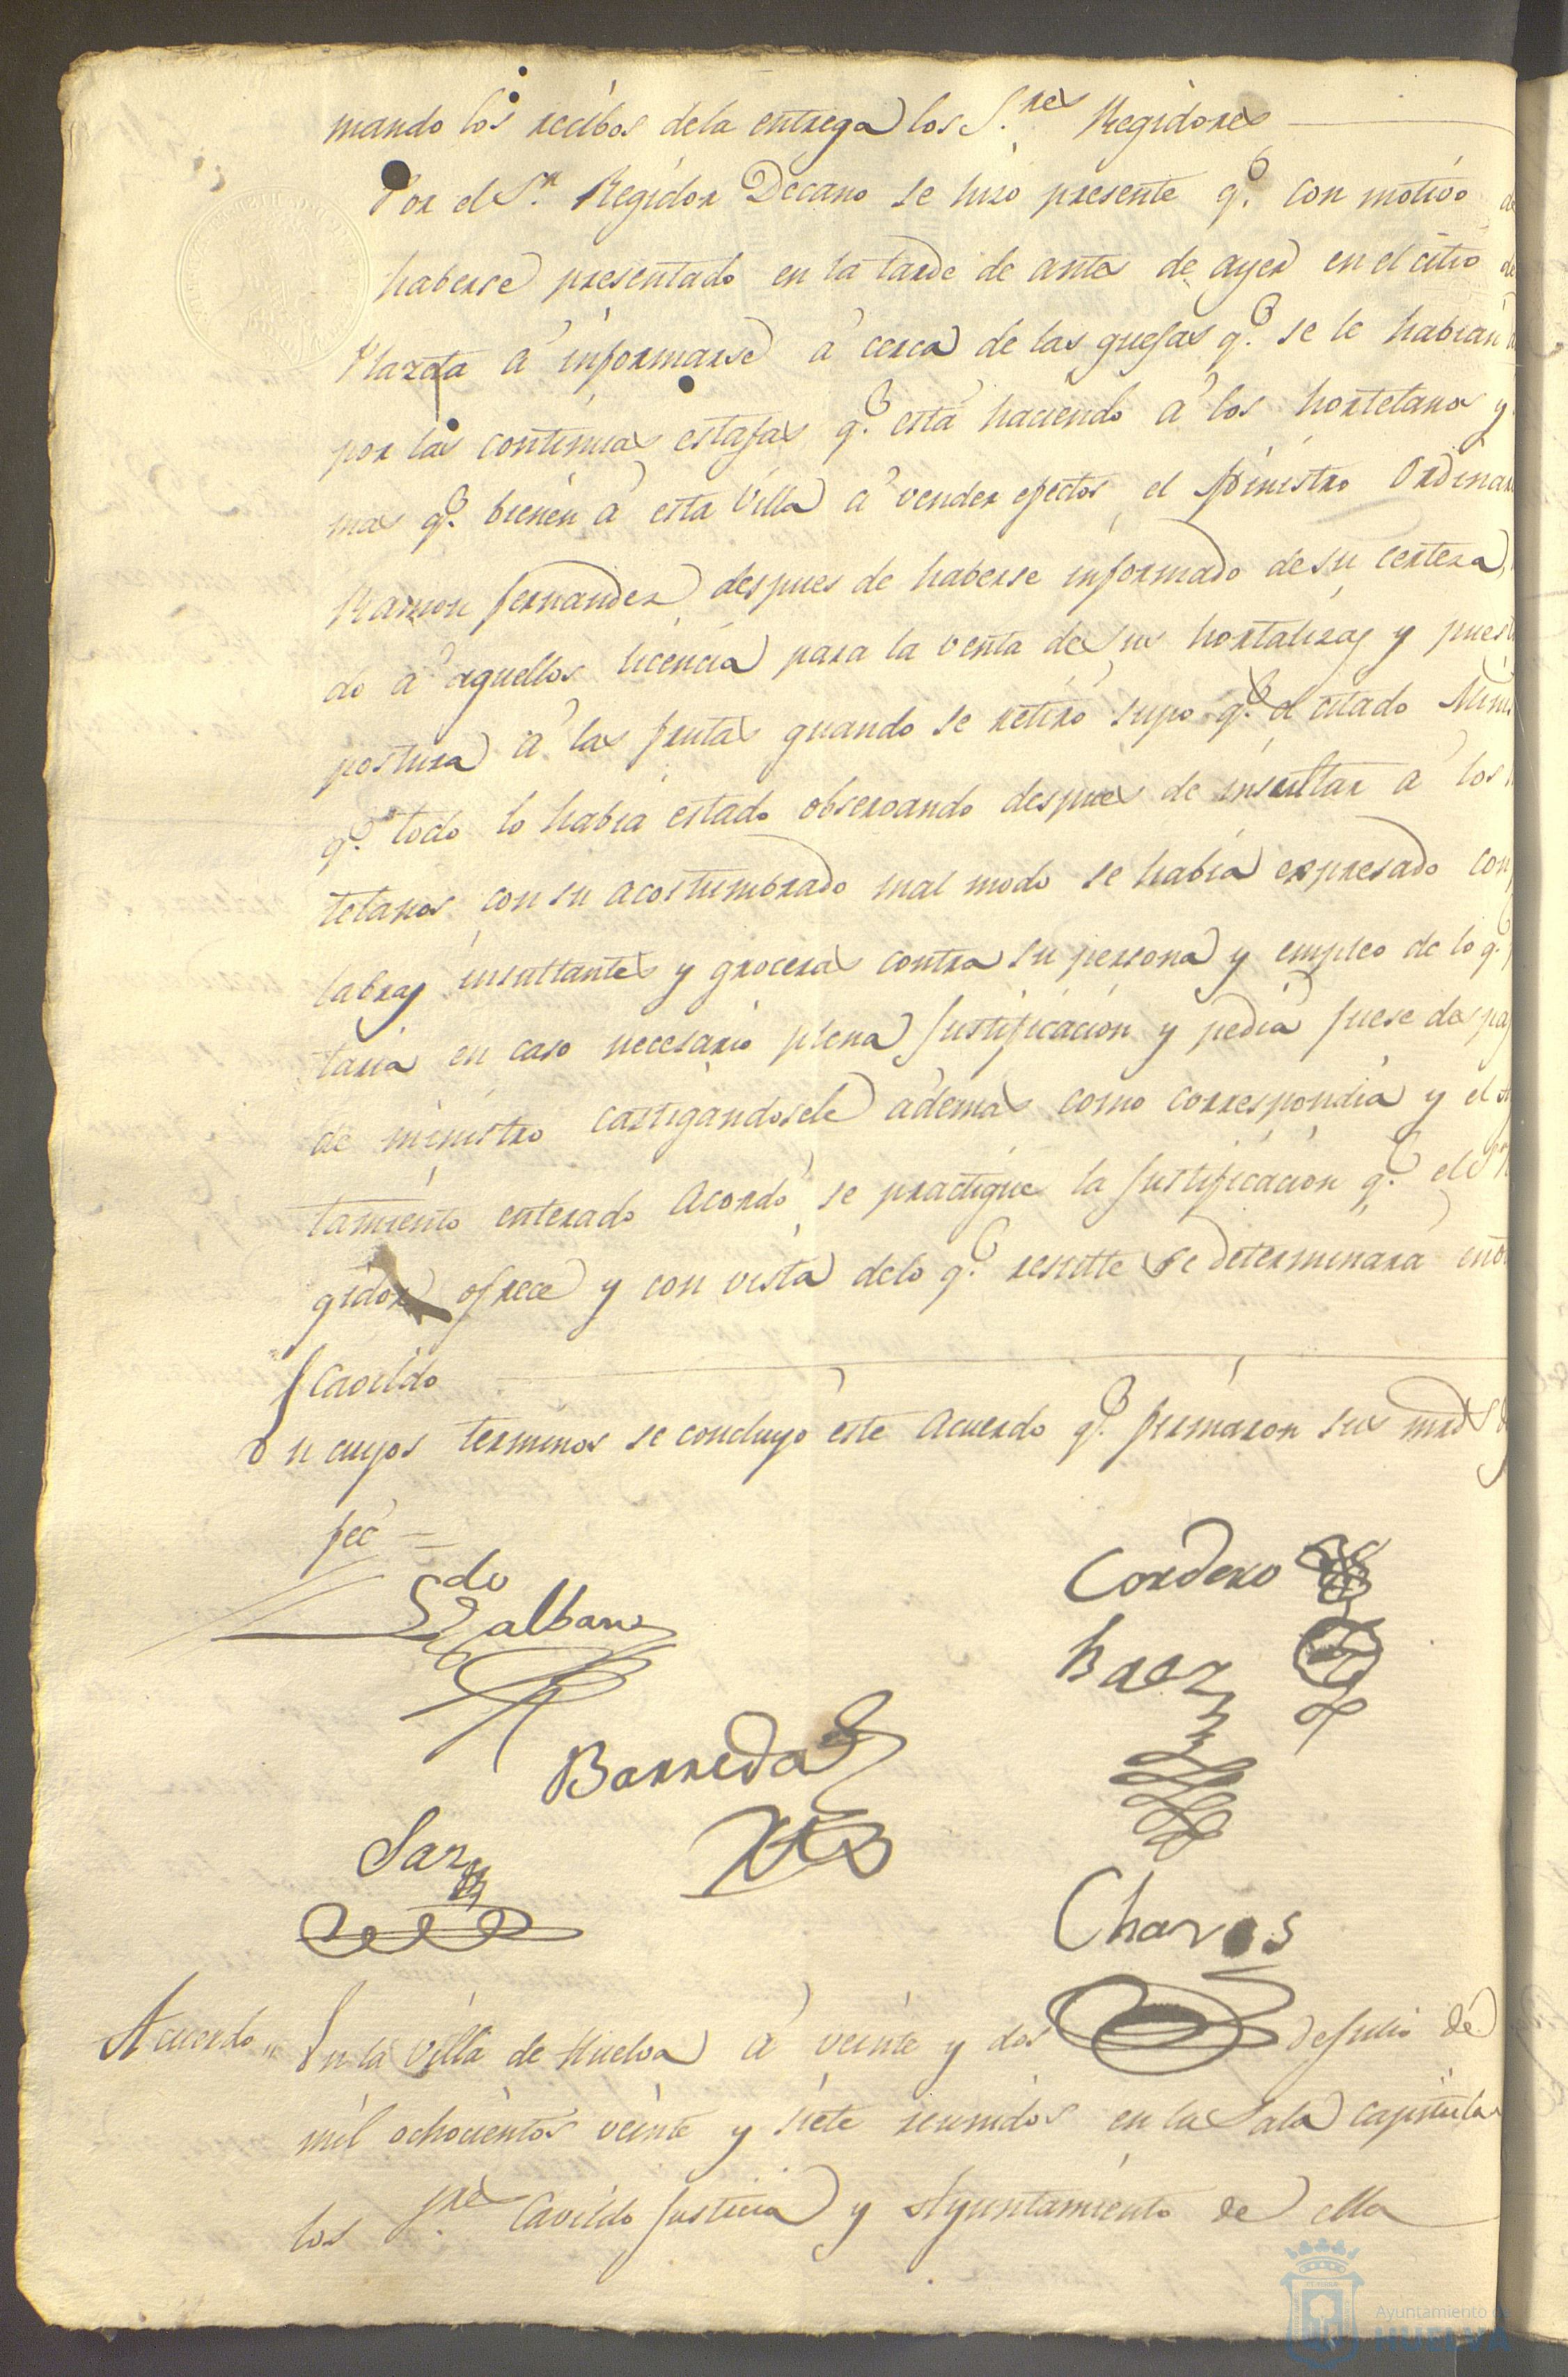 mando los recibos dela entrega los S.res Regidores
Por el S.r Regidor Decano se hizo presente q.e con motivo de
haberse presentado en la tarde de antes de ayer en el citio de
Plazeta á informarse á cerca de las quejas q.e se le habian
por las continuas estafas q.e está haciendo á los hortelanos y
mas q.e bienen á esta Villa á vender efectos el Ministro Ordinar
Ramon Fernandez despues de haberse informado de su certeza,
do á aquellos licencia para la venta de sus hortalizas y puest
postura á las frutas quando se retiró supo q.e el citado Minis
q.e todo lo habia estado observando despues de insultar á los
telanos con su acostumbrado mal modo se habia expresado con
labras insultantes y groceras contra su persona y empleo de lo q.e
taria en caso necesario plena Justificacion y pedia fuese des pa
de ministro castigandosele ademas como correspondia y el
tamiento enterado Acordó se practique la Justificacion q.e el S.r
gidor ofrece y con vista delo q.e resulte se determinará en
Cavildo
En cuyos terminos se concluyó este Acuerdo q.e firmaron sus mrds
feé =
Cordero
Baez
Barreda
Saez
Chaves
Acuerdo En la Villa de Huelva á veinte y dos de Julio de
mil ochocientos veinte y siete reunidos en la Sala capitular
los S.res Cavildo Justicia y Ayuntamiento de ella
Ayuntamiento de
HUELVA